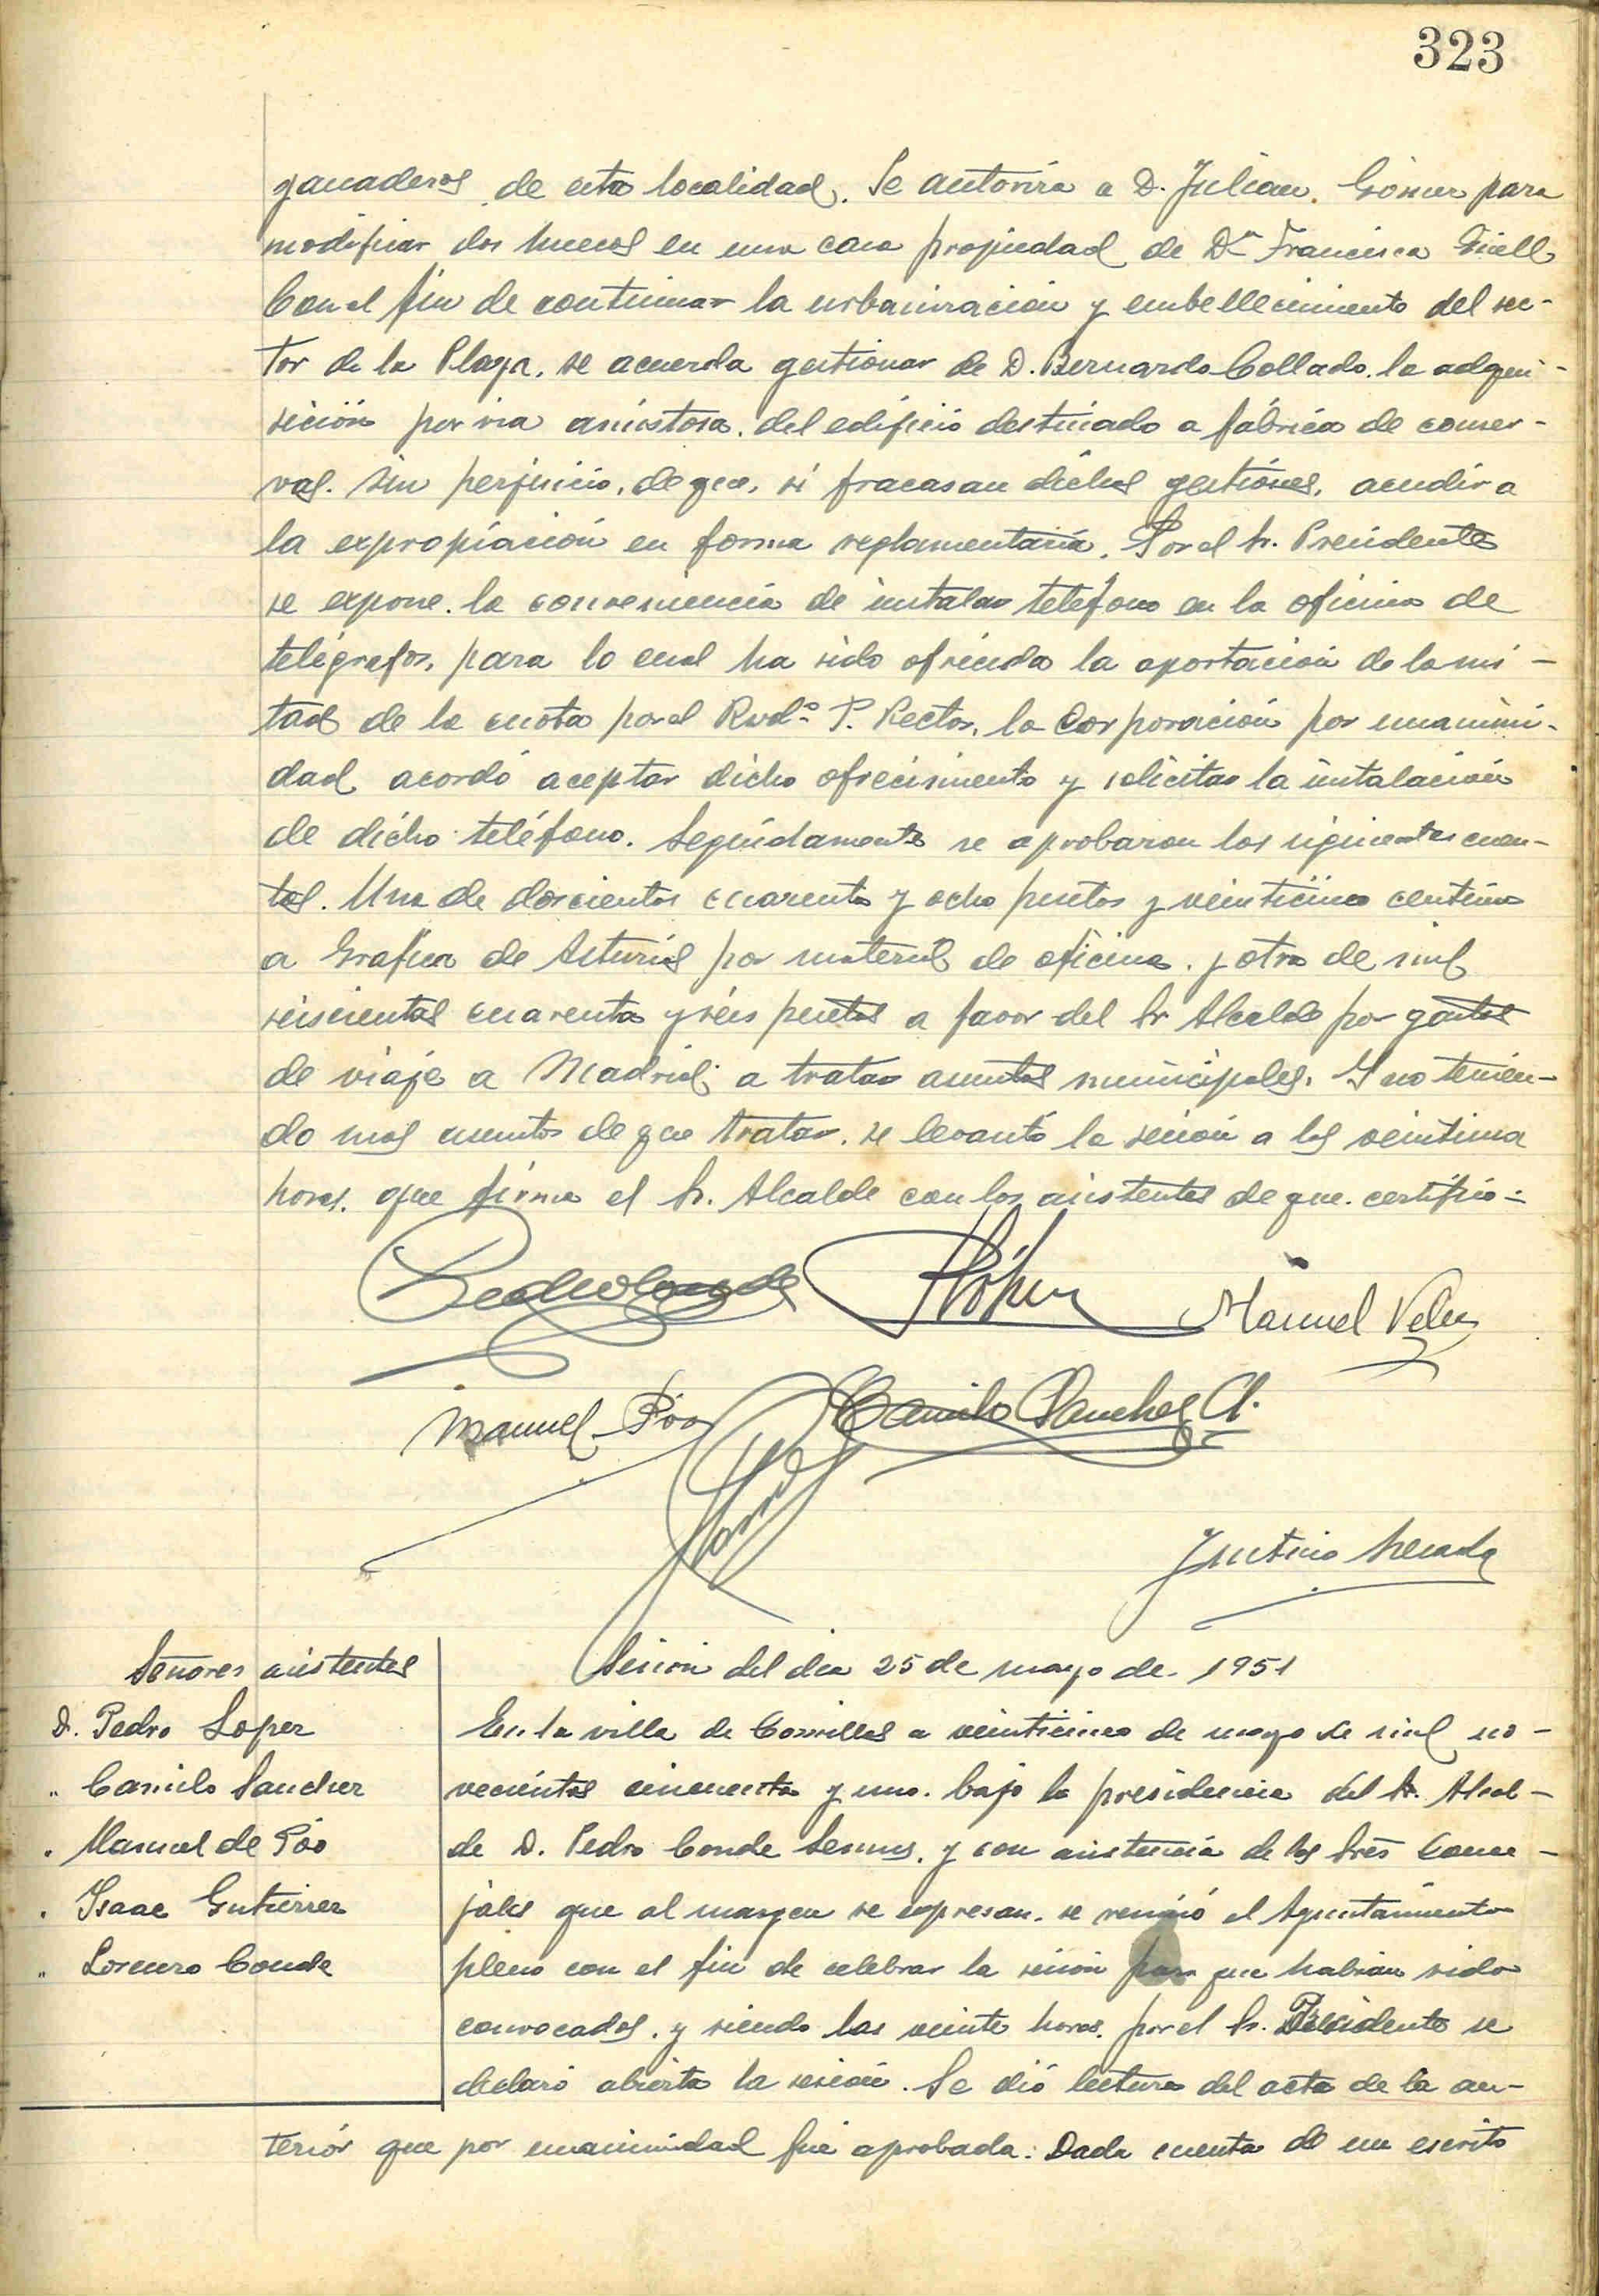 323
ganaderos de esta localidad. Se autoriza a D. Julian Gómez para
modificar dos huecos en una casa propiedad de Dª Francisca Güell
Con el fin de continuar la urbanización y embellecimiento del sec-
tor de la Playa, se acuerda gestionar de D. Bernardo Collado, la adqui-
sición por via amistosa, del edificio destinado a fábrica de conser-
vas. sin perjuicio, de que, si fracasan dichas gestiones, acudir a
la expropiación en forma reglamentaria. Por el Sr. Presidente
se expone la conveniencia de instalar teléfono en la oficina de
telégrafos, para lo cual ha sido ofrecida la aportación de la mi-
tad de la cuota por el Rvdº P. Rector, la Corporación por unanimi-
dad acordó aceptar dicho ofrecimiento y solicitar la instalación
de dicho teléfono. Seguidamente se aprobaron las siguientes cuen-
tas. Una de doscientas cuarenta y ocho pesetas y veinticinco centimos
a Grafica de Asturias por material de oficina, y otra de mil
seiscientas cuarenta y seis pesetas a favor del Sr Alcalde por gastos
de viaje a Madrid a tratar asuntos municipales. Y no tenien-
do mas asuntos de que tratar, se levantó la sesión a las veintiuna
horas, que firma el Sr. Alcalde con los asistentes de que certifico=
Pedro Conde
Manuel Velez
Manuel Póo
Camilo Sanchez A.
Señores asistentes
D. Pedro Lopez
" Camilo Sanchez
" Manuel de Póo
" Isaac Gutierrez
" Lorenzo Conde
Sesion del dia 25 de mayo de 1951
En la villa de Comillas a veinticinco de mayo de mil no-
vecientos cincuenta y uno, bajo la presidencia del Sr. Alcal-
de D. Pedro Conde y con asistencia de los Sres Conce-
jales que al margen se expresan, se reunió el Ayuntamiento
pleno con el fin de celebrar la sesion para que habian sido
convocados, y siendo las veinte horas, por el Sr. Presidente se
declaró abierta la sesión. Se dió lectura del acta de la an-
terior que por unanimidad fue aprobada. Dada cuenta de un escrito